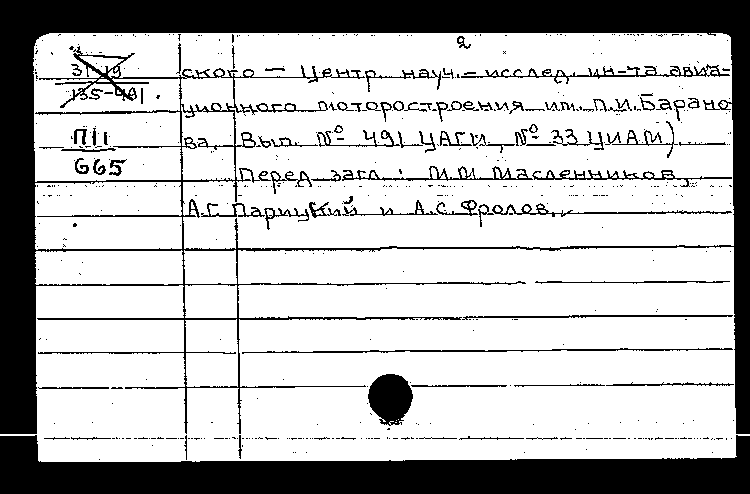 2
31-19
135-491
ского — Центр. науч.-исслед. ин-та авиа-
ционного моторостроения им. П.И.Барано
П11
665
ва. Вып. № 491 ЦАГИ, № 33 ЦИАМ).
Перед загл.: М.М. Масленников,
А.Г. Парицкий и А.С. Фролов.